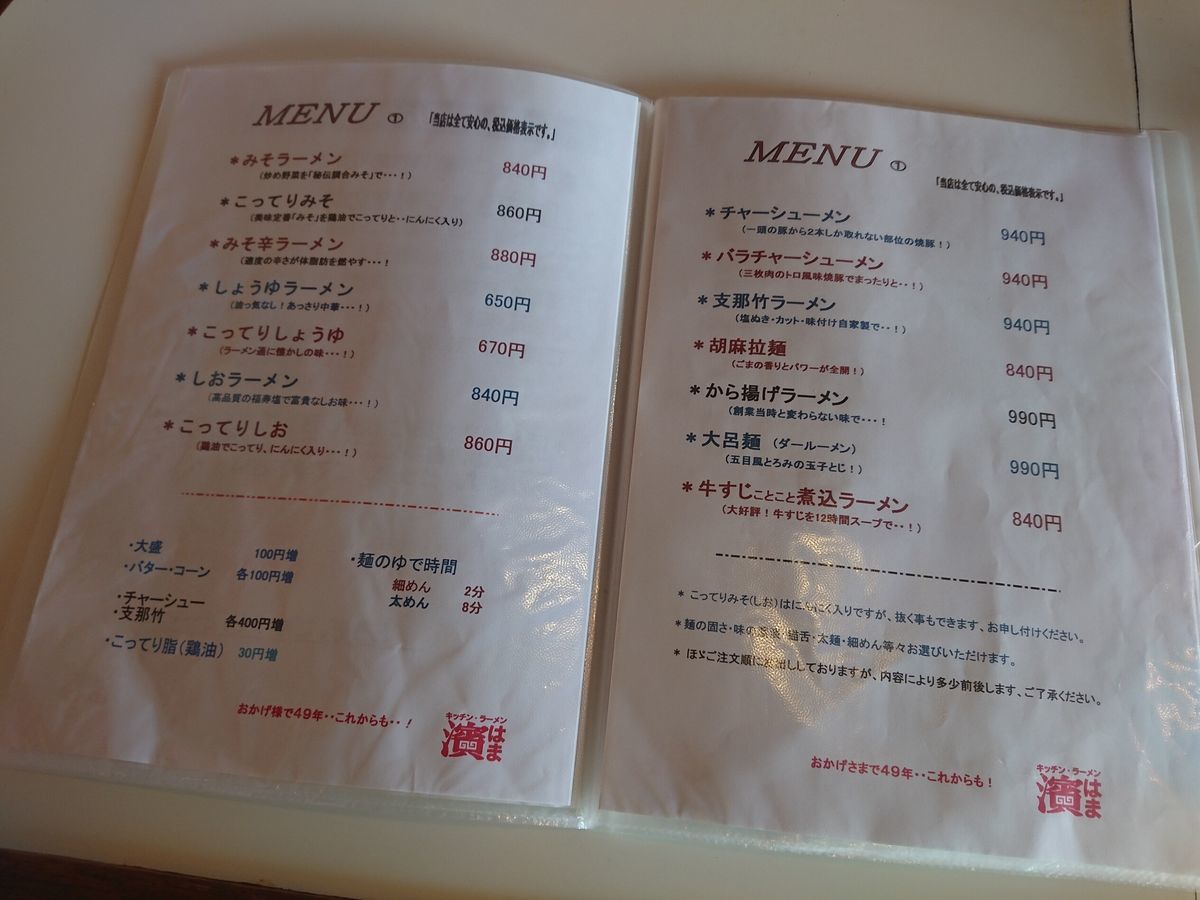 MENU ①
「当店は全て安心の、税込価格表示です。」
＊みそラーメン 840円
(炒め野菜を「秘伝調合みそ」で・・・！)
＊こってりみそ 860円
(美味定番「みそ」を鶏油でこってりと・・にんにく入り)
＊みそ辛ラーメン 880円
(適度の辛さが体脂肪を燃やす・・・！
＊しょうゆラーメン 650円
(油っ気なし！あっさり中華・・・！)
＊こってりしょうゆ 670円
(ラーメン通に懐かしの味・・・！)
＊しおラーメン 840円
(高品質の福寿塩で富貴なしお味・・・！)
＊こってりしお 860円
(鶏油でこってり、にんにく入り・・・！)
・大盛 100円増
・バター・コーン 各100円増
・チャーシュー
・支那竹 各400円増
・こってり脂(鶏油) 30円増
・麺のゆで時間
細めん 2分
太めん 8分
おかげ様で49年・・これからも・・！
キッチン・ラーメン
濱はま
MENU ①
「当店は全て安心の、税込価格表示です。」
＊チャーシューメン 940円
(一頭の豚から2本しか取れない部位の焼豚！)
＊バラチャーシューメン 940円
(三枚肉のトロ風味焼豚でまったりと・・！)
＊支那竹ラーメン 940円
(塩ぬき・カット・味付け自家製で・・！)
＊胡麻拉麺 840円
(ごまの香りとパワーが全開！)
＊から揚げラーメン 990円
(創業当時と変わらない味で・・・！
＊大呂麺 (ダールーメン) 990円
(五目風とろみの玉子とじ！)
＊牛すじことこと煮込ラーメン 840円
(大好評！牛すじを12時間スープで・・！)
＊こってりみそ(しお)はにんにく入りですが、抜く事もできます、お申し付けください。
＊麺の固さ・味の ・猫舌・太麺・細めん等々お選びいただけます。
＊ ほゞご注文順にお出ししておりますが、内容により多少前後します、ご了承ください。
おかげさまで49年・・これからも！
キッチン・ラーメン
濱はま